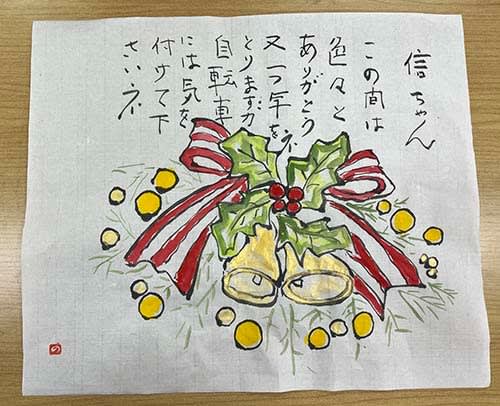 信ちゃん
この間は
色々と
ありがとうネ
又一つ年を
とりますガ
自転車
には気を
付けて下
さいネ
の